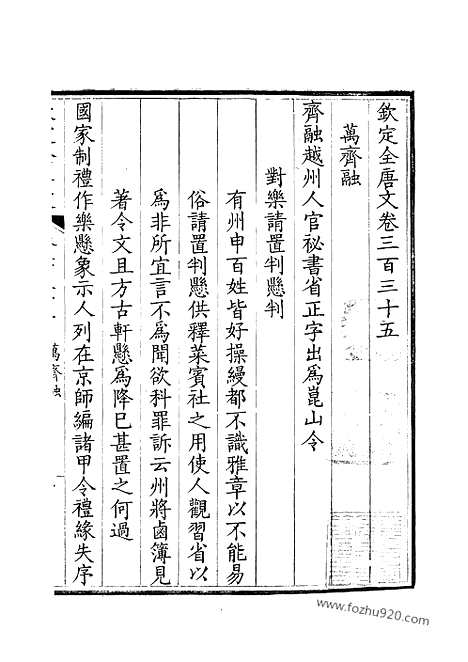 欽定全唐文卷三百三十五
萬齊融
齊融越州人官祕書省正字出爲崑山令
對樂請置判懸判
有州申百姓皆好操縵都不識雅章以不能易
俗請置判懸供釋菜賓社之用使人觀習省以
爲非所宜言不爲聞欲科罪訴云州將鹵簿見
著令文且方古軒懸爲降已甚置之何過
國家制禮作樂懸象示人列在京師編諸甲令禮緣失序
萬齊融
www.fozhu920.com